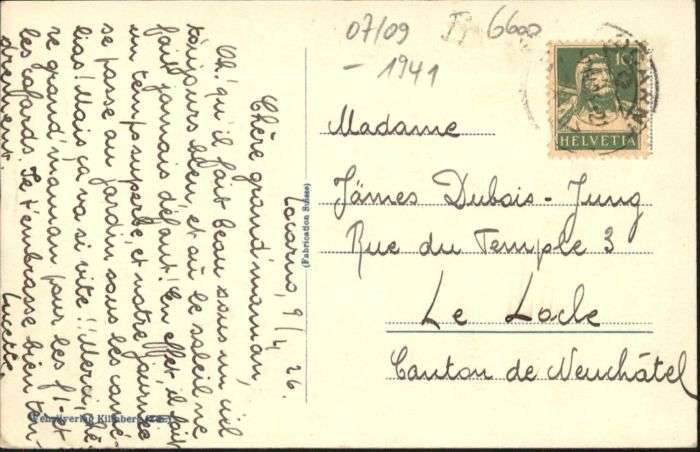 Locarno, 9/4 26.
Chère grand'maman,
Oh! qu'il fait beau sous un ciel
toujours bleu, et où le soleil ne
fait jamais défaut! En effet, il fait
un temps superbe, et notre journée
se passe au jardin sous les camé-
lias! Mais ça va si vite!! Merci, chè-
re grand'maman pour les f 1.- et
les cafards. Je t'embrasse bien ten-
drement.
Lucette.
(Fabrication Suisse)
Verlag Kilchberg
07/09 6600
- 1941
10
HELVETIA
LOCARNO
Madame
James Dubois-Jung
Rue du Temple 3
Le Locle
Canton de Neuchâtel